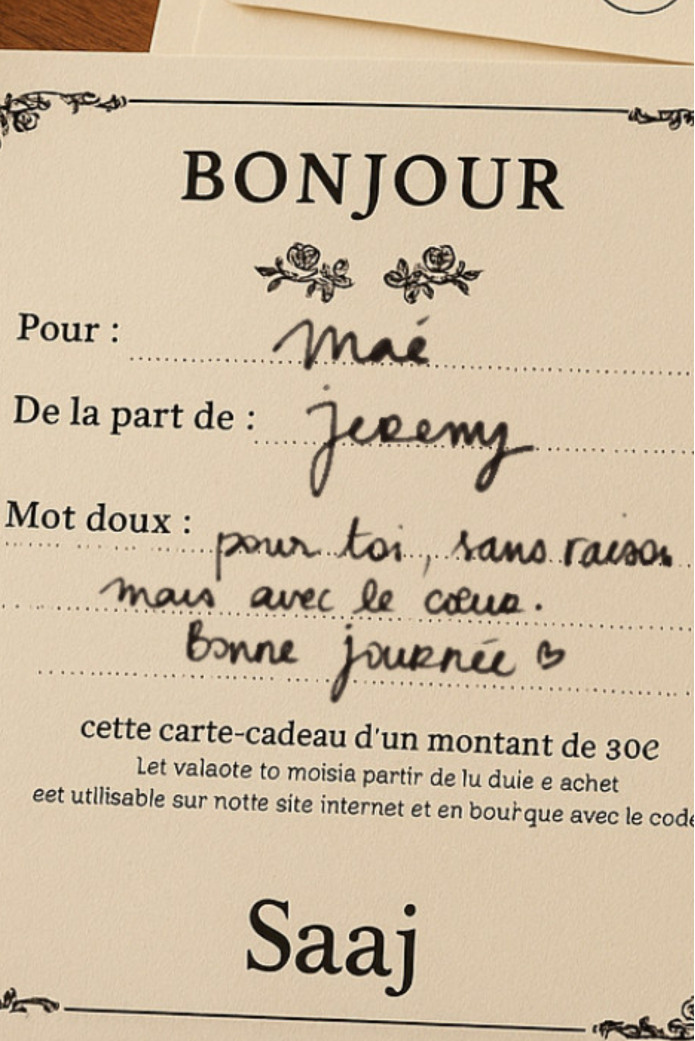 BONJOUR
Pour : Maé
De la part de : Jeremy
Mot doux : pour toi, sans raison
mais avec le cœur.
Bonne journée ♡
cette carte-cadeau d'un montant de 30e
Let valaote to moisia partir de lu duie e achet
eet utllisable sur notte site internet et en bourque avec le code
Saaj